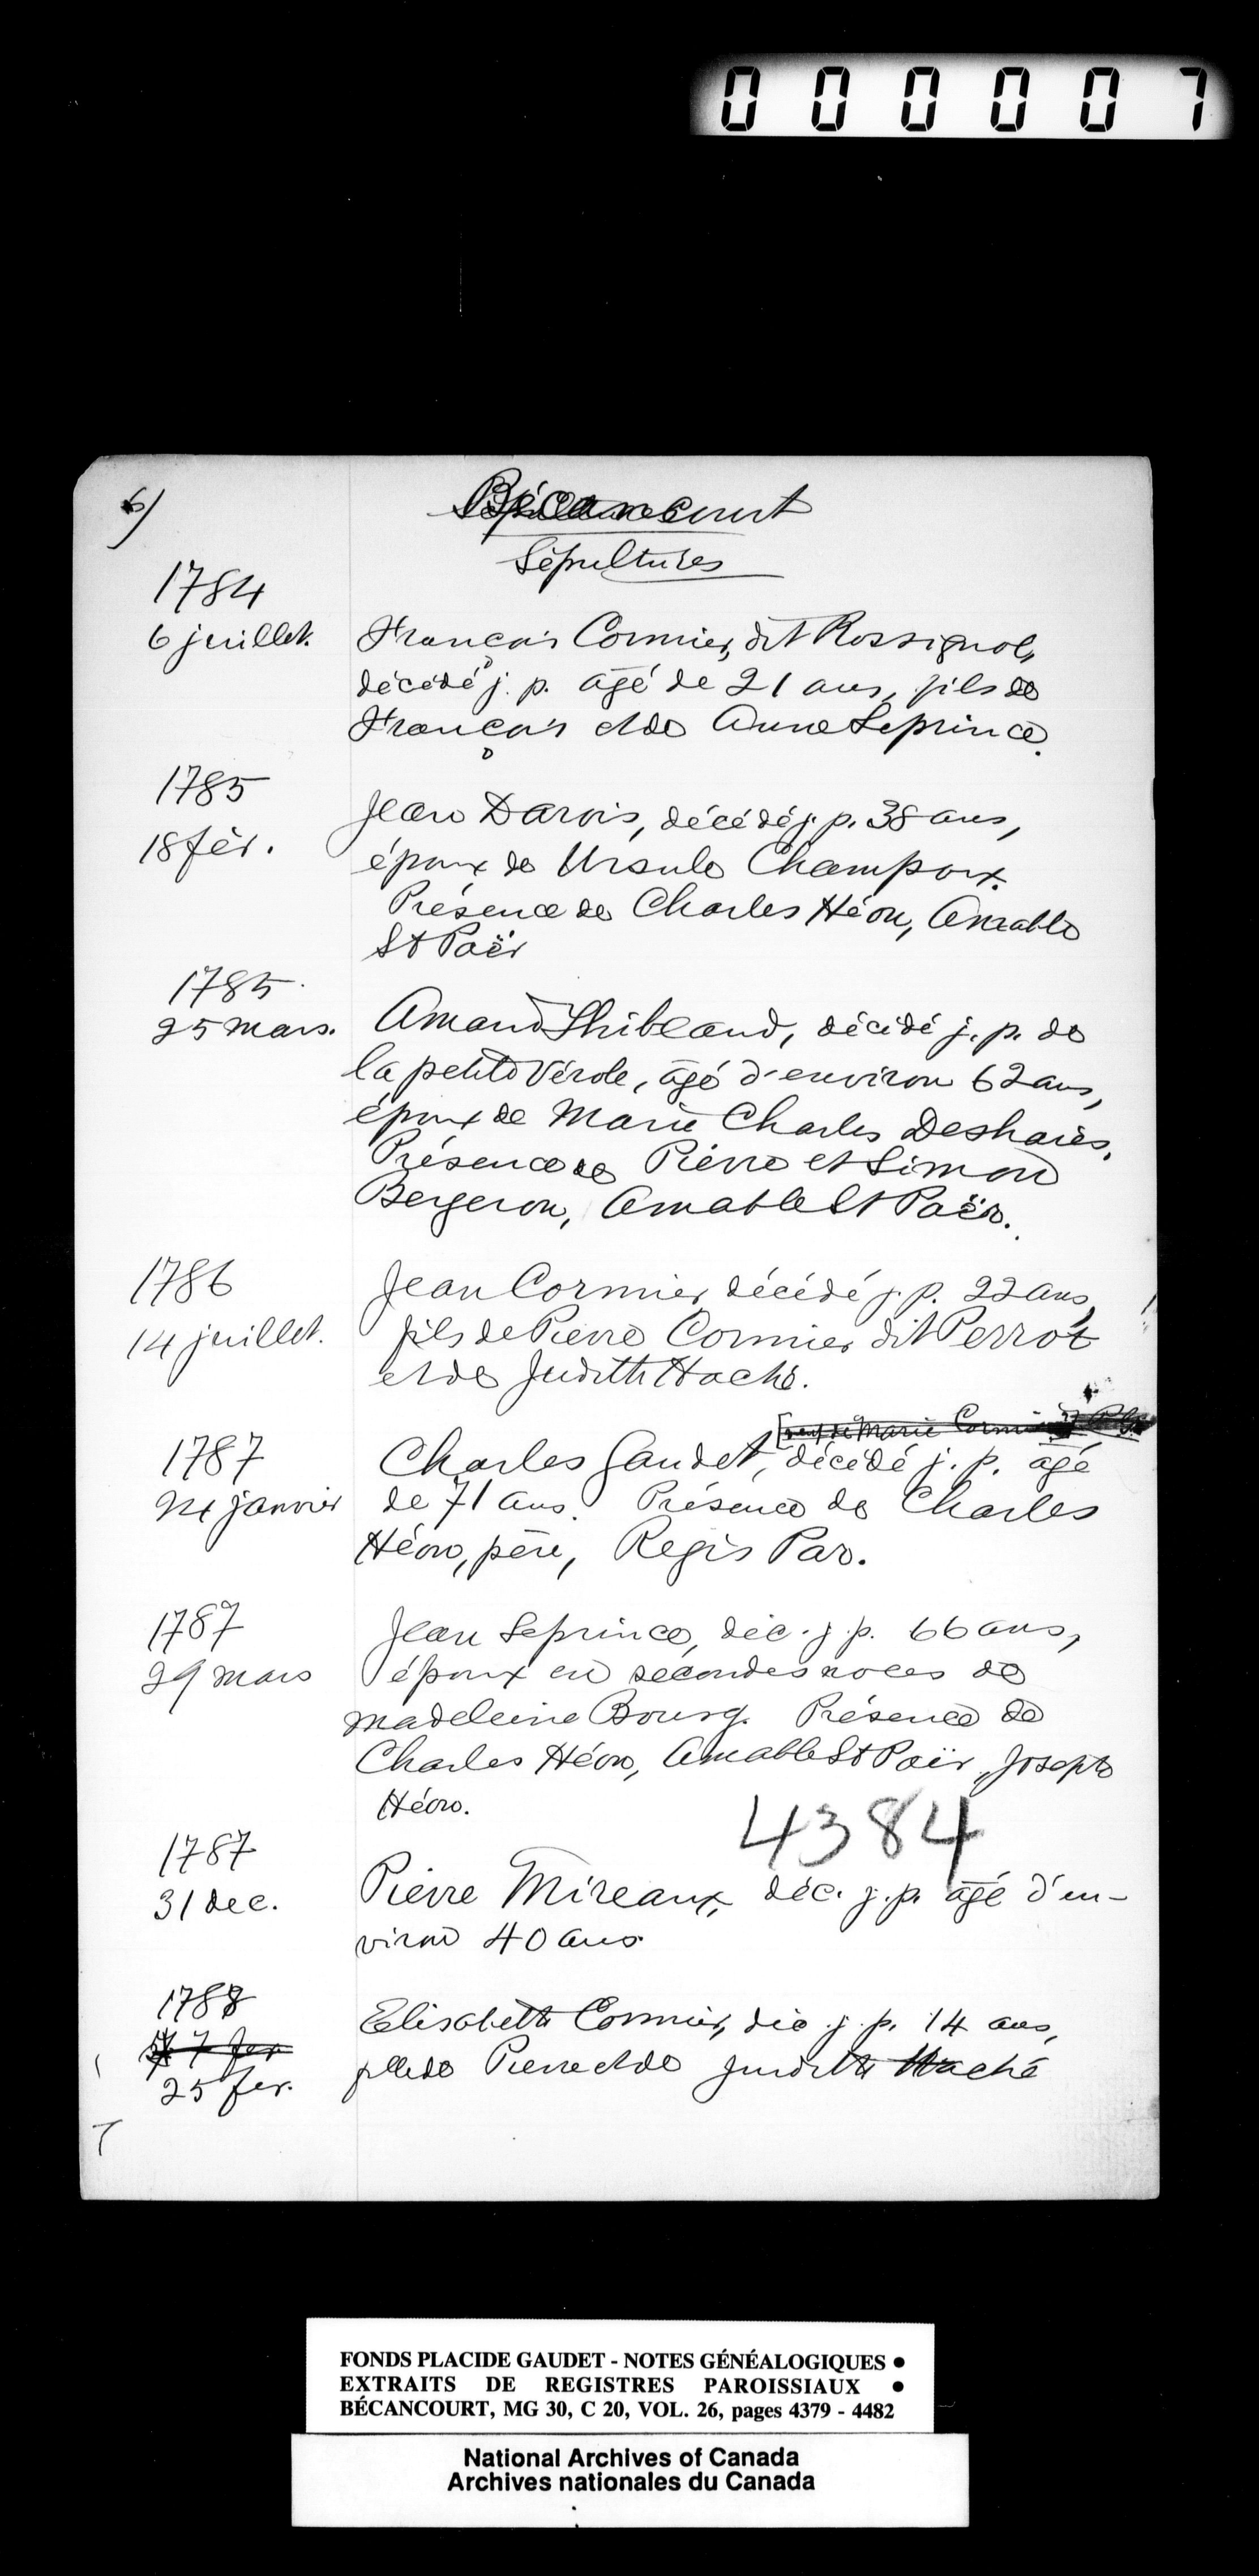 000007
6)
Bécancourt
Sépultures
1784
6 juillet. François Cormier, dit Rossignol,
décédé j. p. âgé de 21 ans, fils de
François et de Anne Leprince.
1785
18 fév. Jean Darois, décédé j. p. 38 ans,
époux de Ursule Champoux.
Présence de Charles Héon, Amable
St Paër
1785
25 mars. Amand Thibeaud, décédé j. p. de
la petite vérole, âgé d'environ 62 ans,
époux de Marie Charles Deshaies.
Présence de Pierre et Simon
Bergeron, Amable St Paër.
1786
14 juillet. Jean Cormier, décédé j. p. 22 ans,
fils de Pierre Cormier dit Perrot
et de Judith Haché.
veuf de Marie
1787
24 janvier Charles Gaudet, décédé j. p. âgé
de 71 ans. Présence de Charles
Héon, père, Regis Par.
1787
29 mars Jean Leprince, déc. j. p. 66 ans,
époux en secondes noces de
Madeleine Bourg. Présence de
Charles Héon, Amable St Paër, Joseph
Héon.
4384
1787
31 dec. Pierre Mireaux, déc. j. p. âgé d'en-
viron 40 ans.
1788
7 fev
25 fev. Elisabeth Cormier, déc j. p. 14 ans,
fille de Pierre et de Judith Haché
FONDS PLACIDE GAUDET - NOTES GÉNÉALOGIQUES •
EXTRAITS DE REGISTRES PAROISSIAUX •
BÉCANCOURT, MG 30, C 20, VOL. 26, pages 4379 - 4482
National Archives of Canada
Archives nationales du Canada